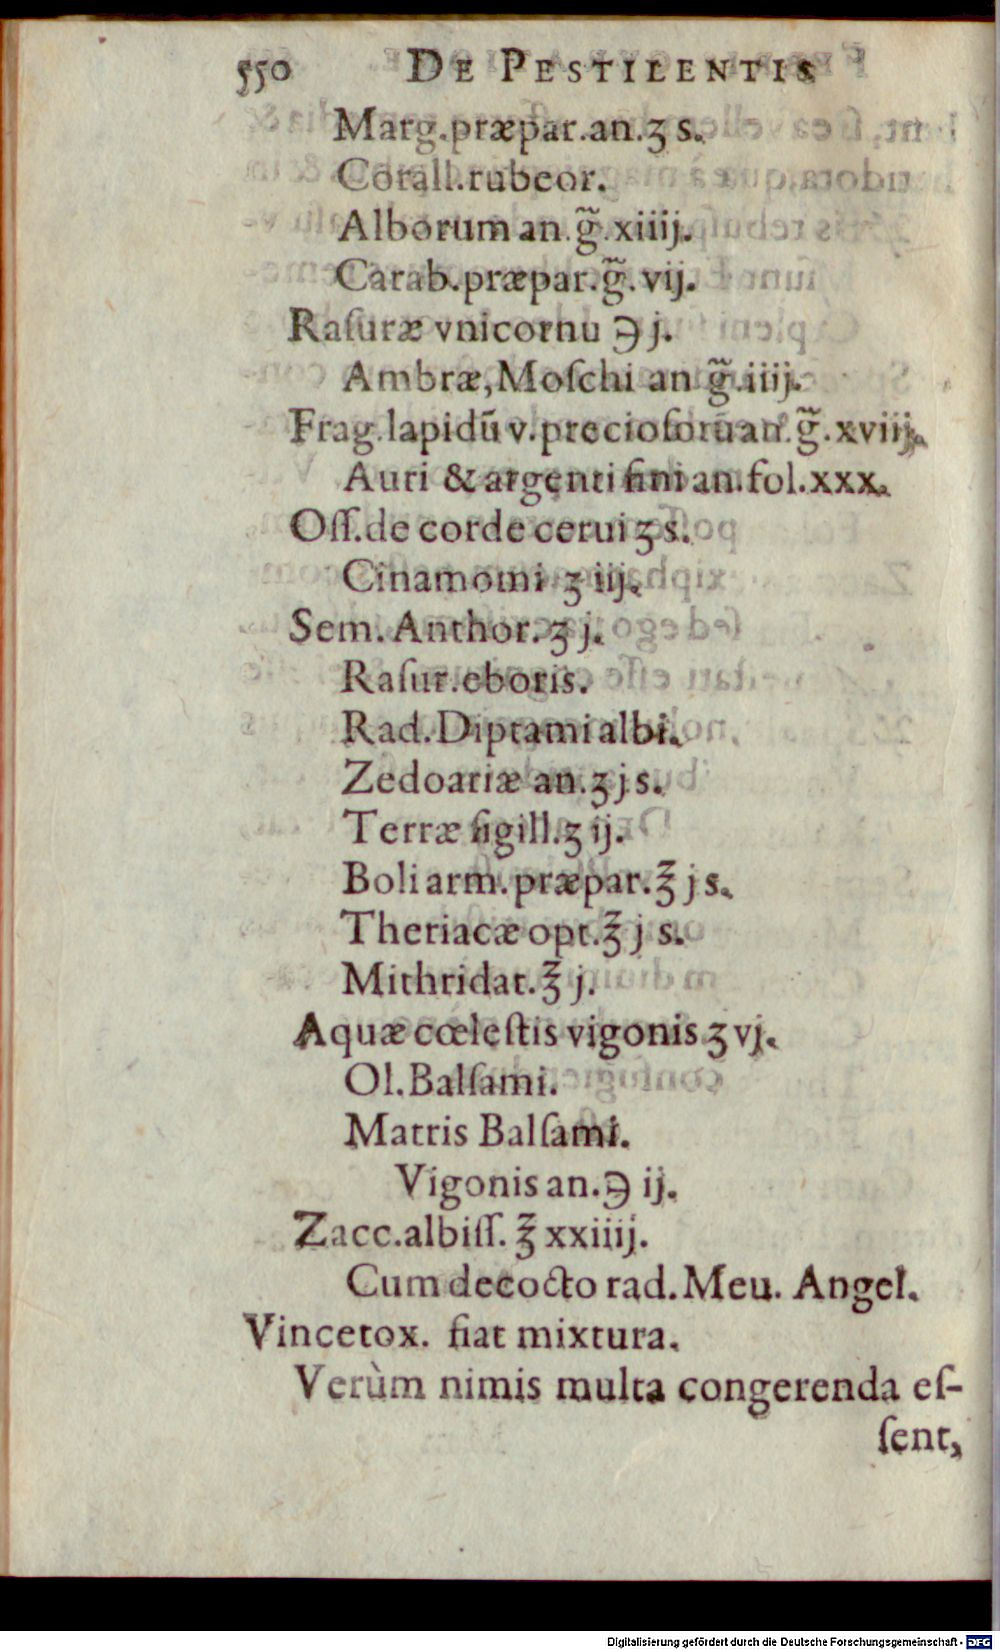 550 DE PESTILENTIS
Marg.præpar.an.ʒ s.
Corall.rubeor.
Alborum an.g̃.xiiij.
Carab.præpar.g̃.vij.
Raſuræ vnicornu ℈ j.
Ambræ,Moſchi an g̃.iiij.
Frag.lapidū v.precioſorū an.g̃.xviij.
Auri & argenti fini an.fol.xxx.
Oſſ.de corde cerui ʒ s.
Cinamomi ʒ iij.
Sem. Anthor. ʒ j.
Raſur.eboris.
Rad.Diptami albi.
Zedoariæ an.ʒ j s.
Terræ ſigill.ʒ ij.
Boli arm.præpar.℥ j s.
Theriacæ opt.℥ j s.
Mithridat.℥ j.
Aquæ cœleſtis vigonis ʒ vj.
Ol.Balſami.
Matris Balſami.
Vigonis an.℈ ij.
Zacc.albiſſ. ℥ xxiiij.
Cum decocto rad.Meu. Angel.
Vincetox. fiat mixtura.
Verùm nimis multa congerenda eſ-
ſent,
Digitalisierung gefördert durch die Deutsche Forschungsgemeinschaft - DFG